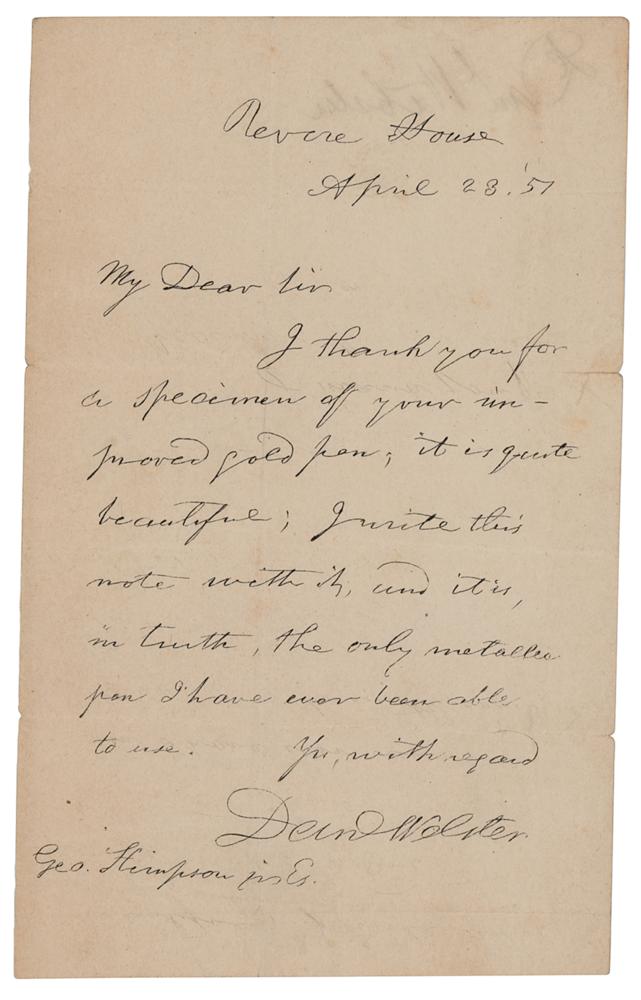 Revere House
April 23. '51
My Dear Sir
I thank you for
a specimen of your im-
proved gold pen; it is quite
beautiful; I write this
note with it, and it is,
in truth, the only metallic
pen I have ever been able
to use. Yrs, with regard
Danl Webster
Geo. Stimpson jr. Es.